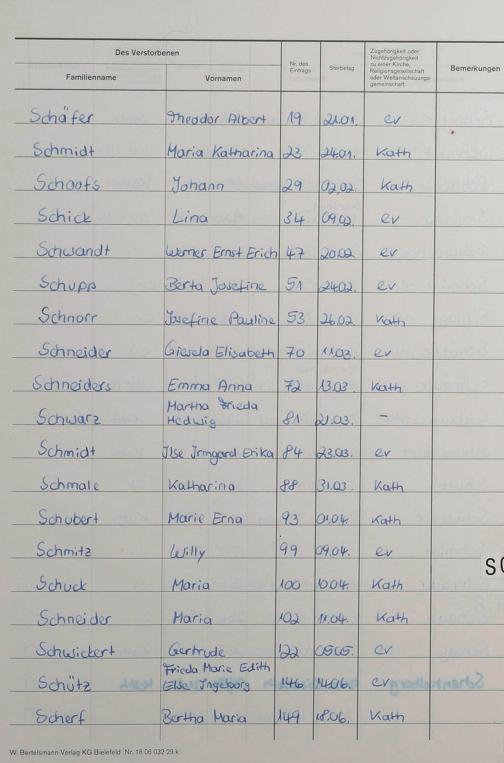 Des Verstorbenen
Familienname Vornamen Nr. des Eintrags Sterbetag Zugehörigkeit oder Nichtzugehörigkeit zu einer Kirche, Religionsgesellschaft oder Weltanschauungsgemeinschaft Bemerkungen
Schäfer Theodor Albert 19 21.01. ev
Schmidt Maria Katharina 23 24.01. Kath
Schoofs Johann 29 02.02. Kath
Schick Lina 34 09.02. ev
Schwandt Werner Ernst Erich 47 20.02. ev
Schupp Berta Josefine 51 24.02. ev
Schnorr Josefine Pauline 53 26.02. Kath
Schneider Gisela Elisabeth 70 11.03. ev
Schneiders Emma Anna 72 13.03. Kath
Martha Frieda
Schwarz Hedwig 81 21.03. -
Schmidt Ilse Irmgard Erika 84 23.03. ev
Schmale Katharina 88 31.03. Kath
Schubert Marie Erna 93 01.04. Kath
Schmitz Willy 99 09.04. ev
Schuck Maria 100 10.04. Kath
Schneider Maria 102 11.04. Kath
Schwickert Gertrude 122 05.05. ev
Frieda Marie Edith
Schütz Else Ingeborg 146 14.06. ev
Scherf Bertha Maria 149 18.06. Kath
W. Bertelsmann Verlag KG Bielefeld Nr. 18 06 032 29 k